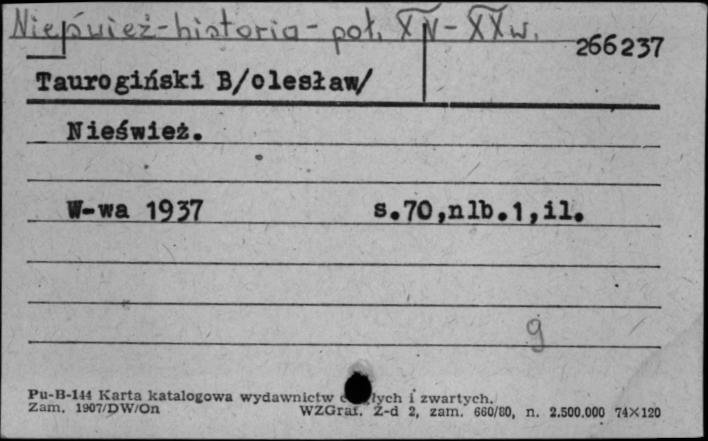 Nieśwież - historia - poł. XV - XX w.
266237
Taurogiński B/olesław/
Nieśwież.
W-wa 1937 s.70,nlb.1,il.
g
Pu-B-144 Karta katalogowa wydawnictw i zwartych.
Zam. 1907/DW/On WZGraf. Z-d 2, zam. 660/80, n. 2.500.000 74×120